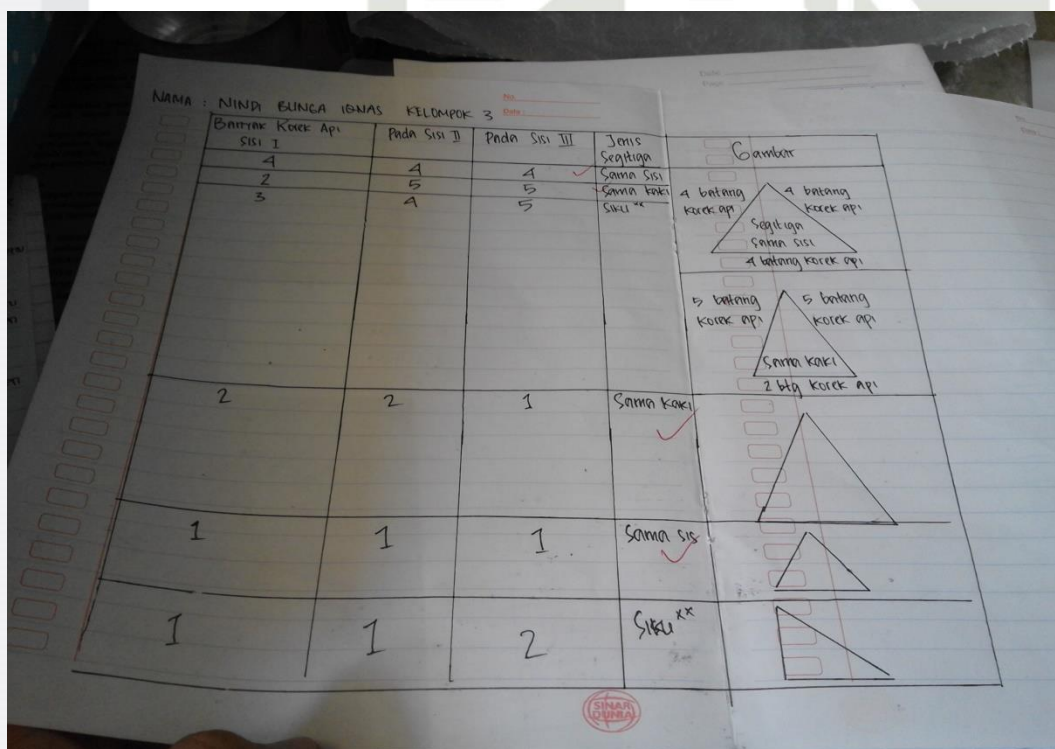 NAMA : NINDI BUNGA KELOMPOK 3
No.
Date :
Banyak Korek Api Sisi I
Pada Sisi II
Pada Sisi III
Jenis Segitiga
Gambar
4 4 4 Sama Sisi
2 5 5 Sama Kaki
3 4 5 Siku xx
4 batang korek api
4 batang korek api
Segitiga sama sisi
4 batang korek api
5 batang korek api
5 batang korek api
Sama kaki
2 btg korek api
2 2 1 Sama kaki
1 1 1 Sama sis
1 1 2 Siku xx
SINAR DUNIA